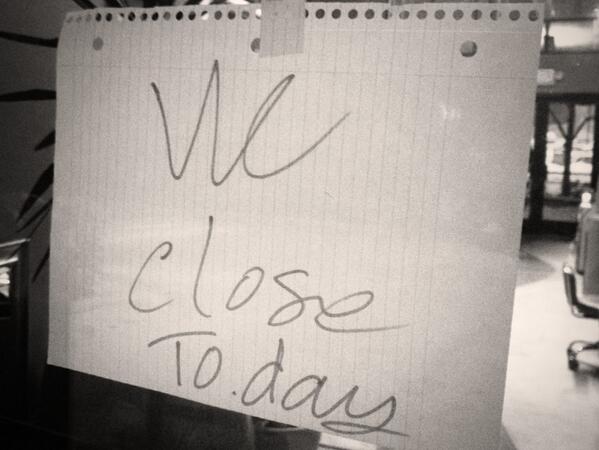 We
close
To.day